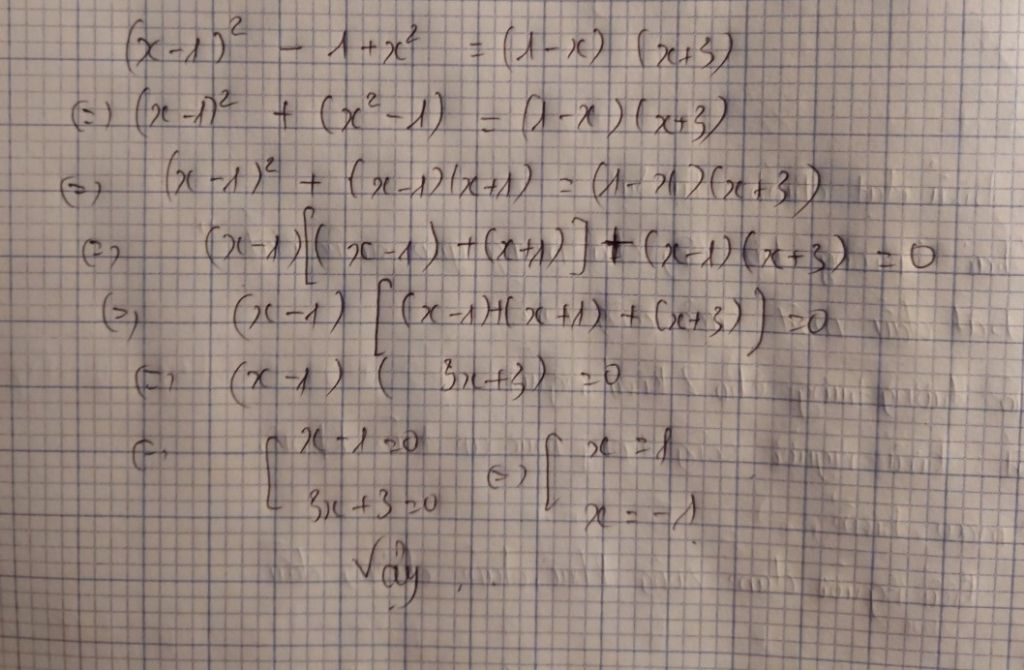 (x-1)² - 1 + x² = (1-x) (x+3)
(=) (x-1)² + (x²-1) = (1-x)(x+3)
(=) (x-1)² + (x-1)(x+1) = (1-x)(x+3)
(=) (x-1)[(x-1) + (x+1)] + (x-1)(x+3) = 0
(=) (x-1) [(x-1)+(x+1) + (x+3)] = 0
(=) (x-1) ( 3x+3) = 0
(=) [ x-1=0 (=) [ x = 1
3x+3=0 x = -1
Vậy ...